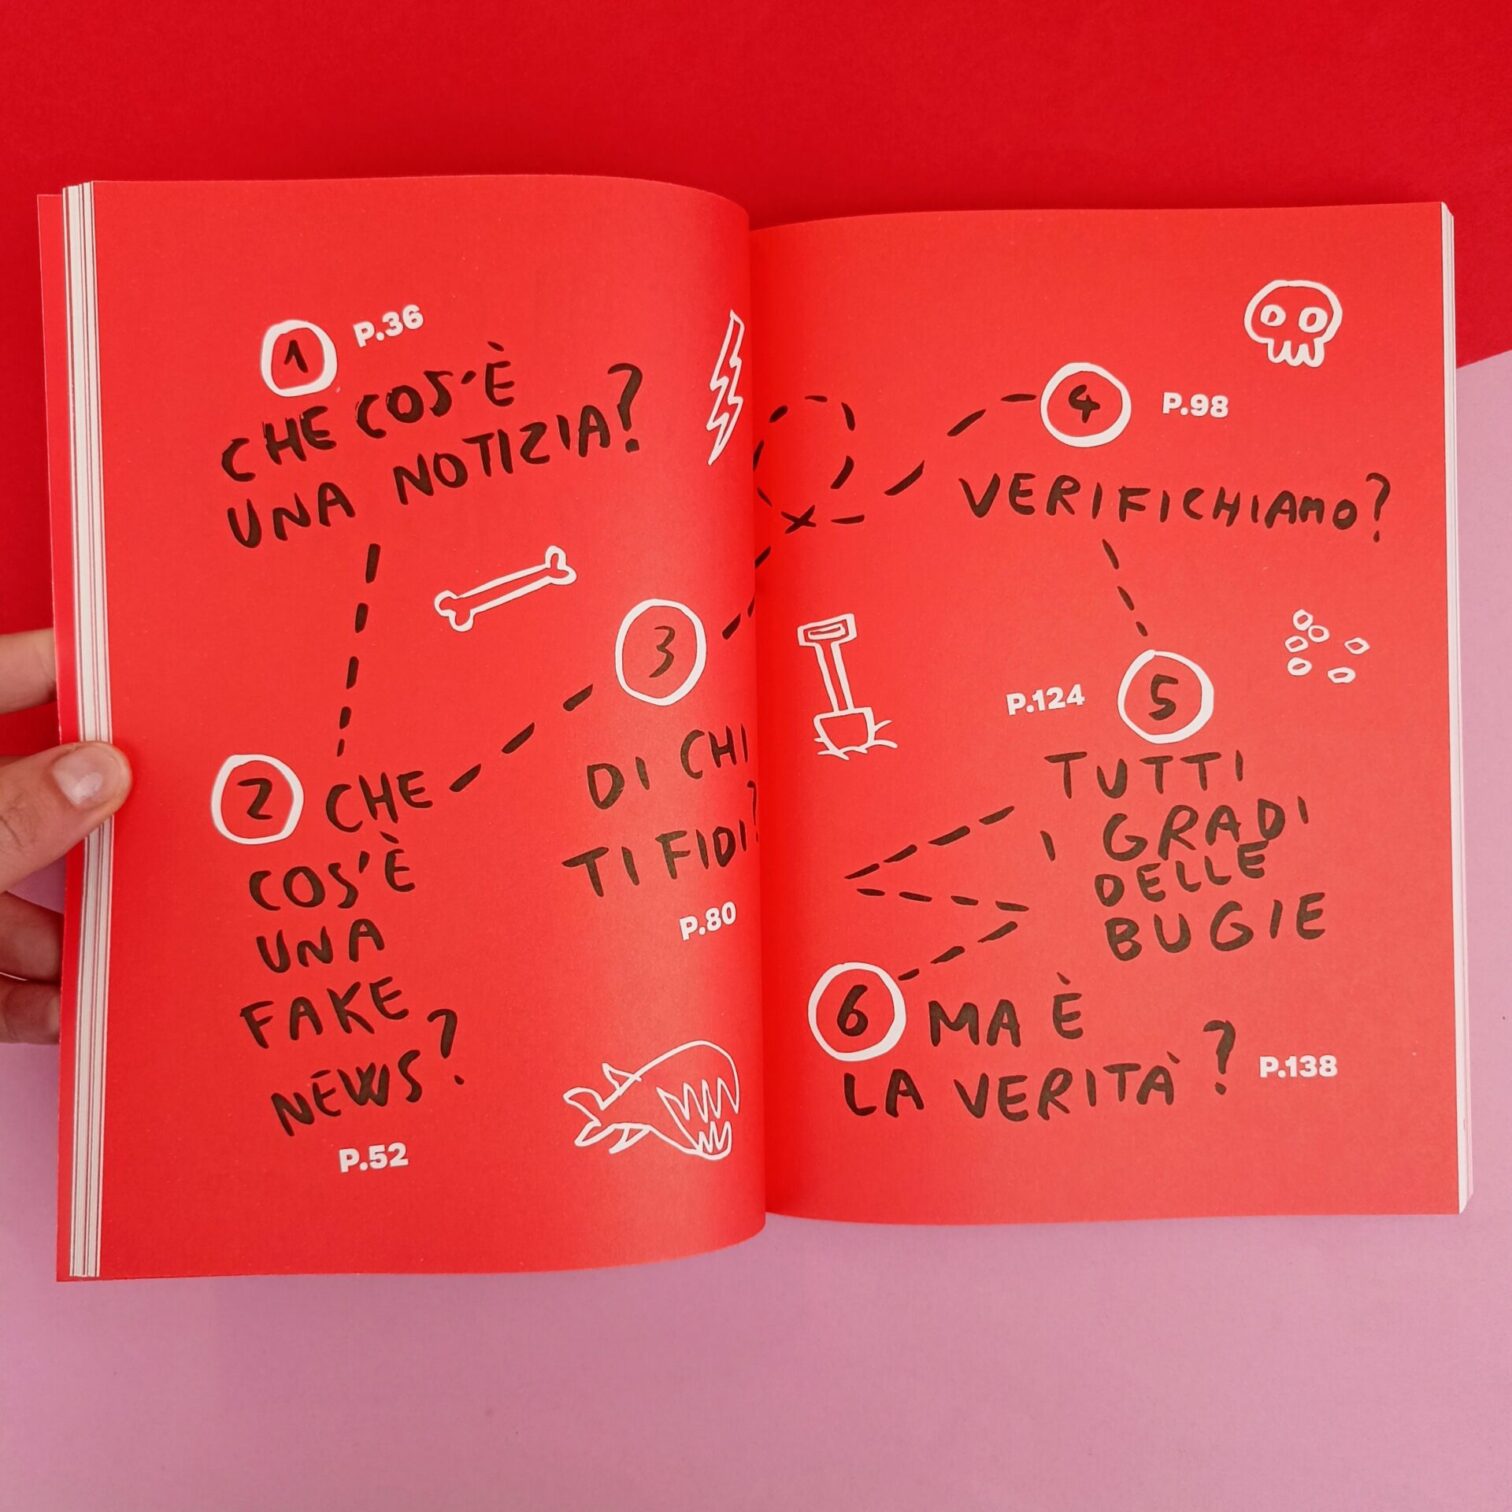 1 P.36
CHE COS'È
UNA NOTIZIA?
2 CHE
COS'È
UNA
FAKE
NEWS?
P.52
3
DI CHI
TI FIDI?
P.80
4 P.98
VERIFICHIAMO?
P.124 5
TUTTI
I GRADI
DELLE
BUGIE
6 MA È
LA VERITÀ? P.138